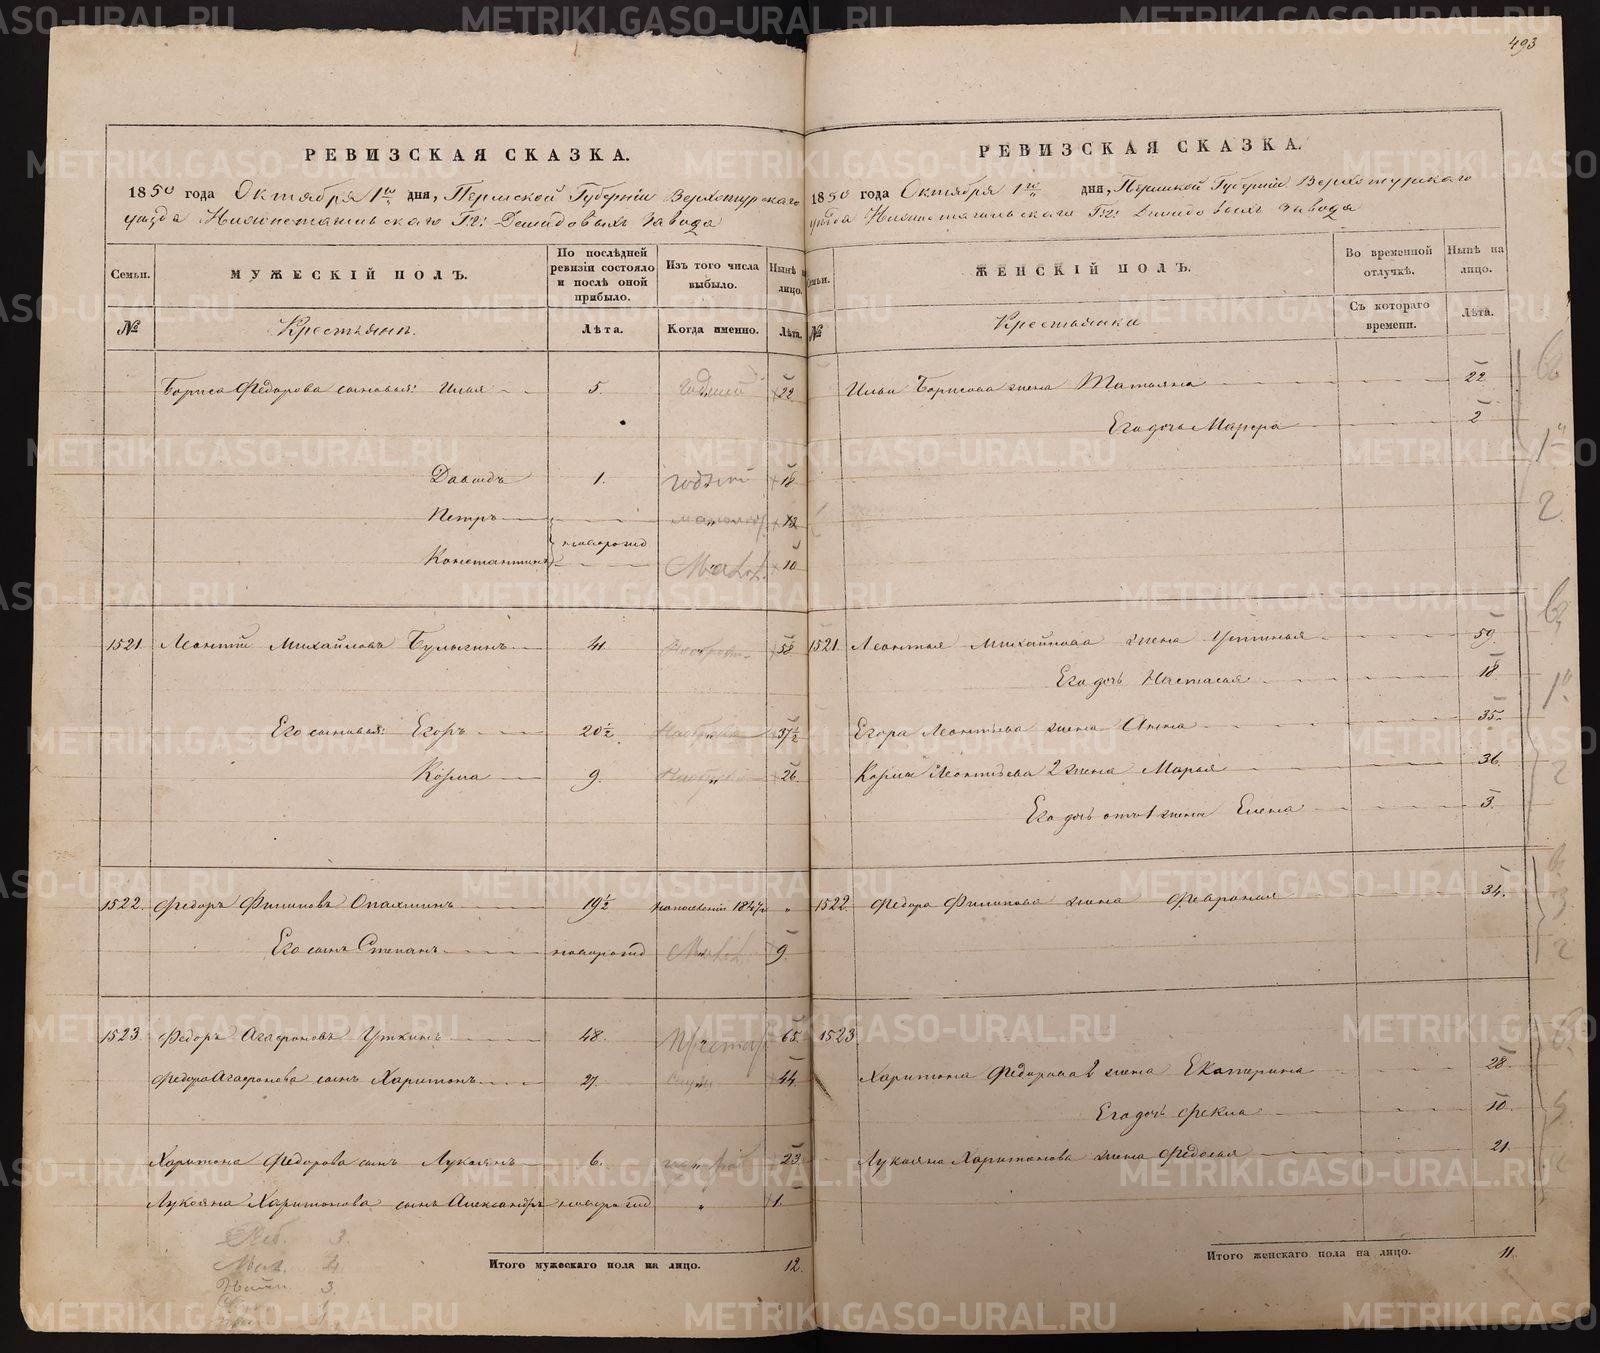 493
РЕВИЗСКАЯ СКАЗКА.
1850 года Октября 1го дня, Пермской Губернiи Верхотурскаго
уѣзда Нижнетагильскаго Г.г: Демидовыхъ завода
Семьи.
МУЖЕСКIЙ ПОЛЪ.
По послѣдней ревизiи состояло и послѣ оной прибыло.
Изъ того числа выбыло.
Нынѣ на лицо.
№
Крестьяне.
Лѣта.
Когда именно.
Лѣта.
Бориса Федорова сыновья: Илья 5. годный 22
Давыдъ 1. годный 18
Петръ 13
новорожд
Константинъ Малол. 10
1521. Леонтiй Михайловъ Булыгинъ 41. 58
Его сыновья: Егоръ 20½ 37½
Козма 9. 26.
1522. Федоръ Филиповъ Опахтинъ 19½ 1847 „
Его сынъ Степанъ новорожд Малол 9
1523. Федоръ Агафоновъ Уткинъ 48. Престар 65.
Федора Агафонова сынъ Харитонъ 27. 44.
Харитона Федорова сынъ Лукоянъ 6. 23.
Лукояна Харитонова сынъ Александръ новорожд „ 1.
3.
Мал. 4.
3
Итого мужескаго пола на лицо. 12.
РЕВИЗСКАЯ СКАЗКА.
1850 года Октября 1го дня, Пермской Губернiи Верхотурскаго
уѣзда Нижнетагильскаго Г.г: Демидовыхъ завода
Семьи.
ЖЕНСКIЙ ПОЛЪ.
Во временной отлучкѣ.
Нынѣ на лицо.
№
Крестьянки
Съ котораго времени.
Лѣта.
Ильи Борисова жена Татьяна 22.
Его дочь Марфа 2
1521. Леонтья Михайлова жена Устинья 59.
Его дочь Настасья 18.
Егора Леонтьева жена Анна 35.
Козмы Леонтьева 2 жена Марья 36.
Его дочь отъ 1 жены Елена 3.
1522. Федора Филипова жена Февронья 34.
1523
Харитона Федорова 2 жена Екатерина 28
Его дочь Фекла 10.
Лукояна Харитонова жена Федосья 21.
Итого женскаго пола на лицо. 11.
METRIKI.GASO-URAL.RU